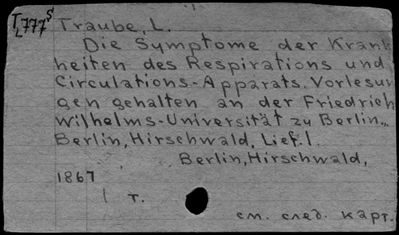 T 777 S Traube, L.
L
Die Symptome der Krank
heiten des Respirations und
Circulations-Apparats. Vorlesun
gen gehalten an der Friedrich
Wilhelms-Universität zu Berlin..
Berlin, Hirschwald, Lief. 1.
Berlin, Hirschwald,
1867
1 т.
см. след. карт.